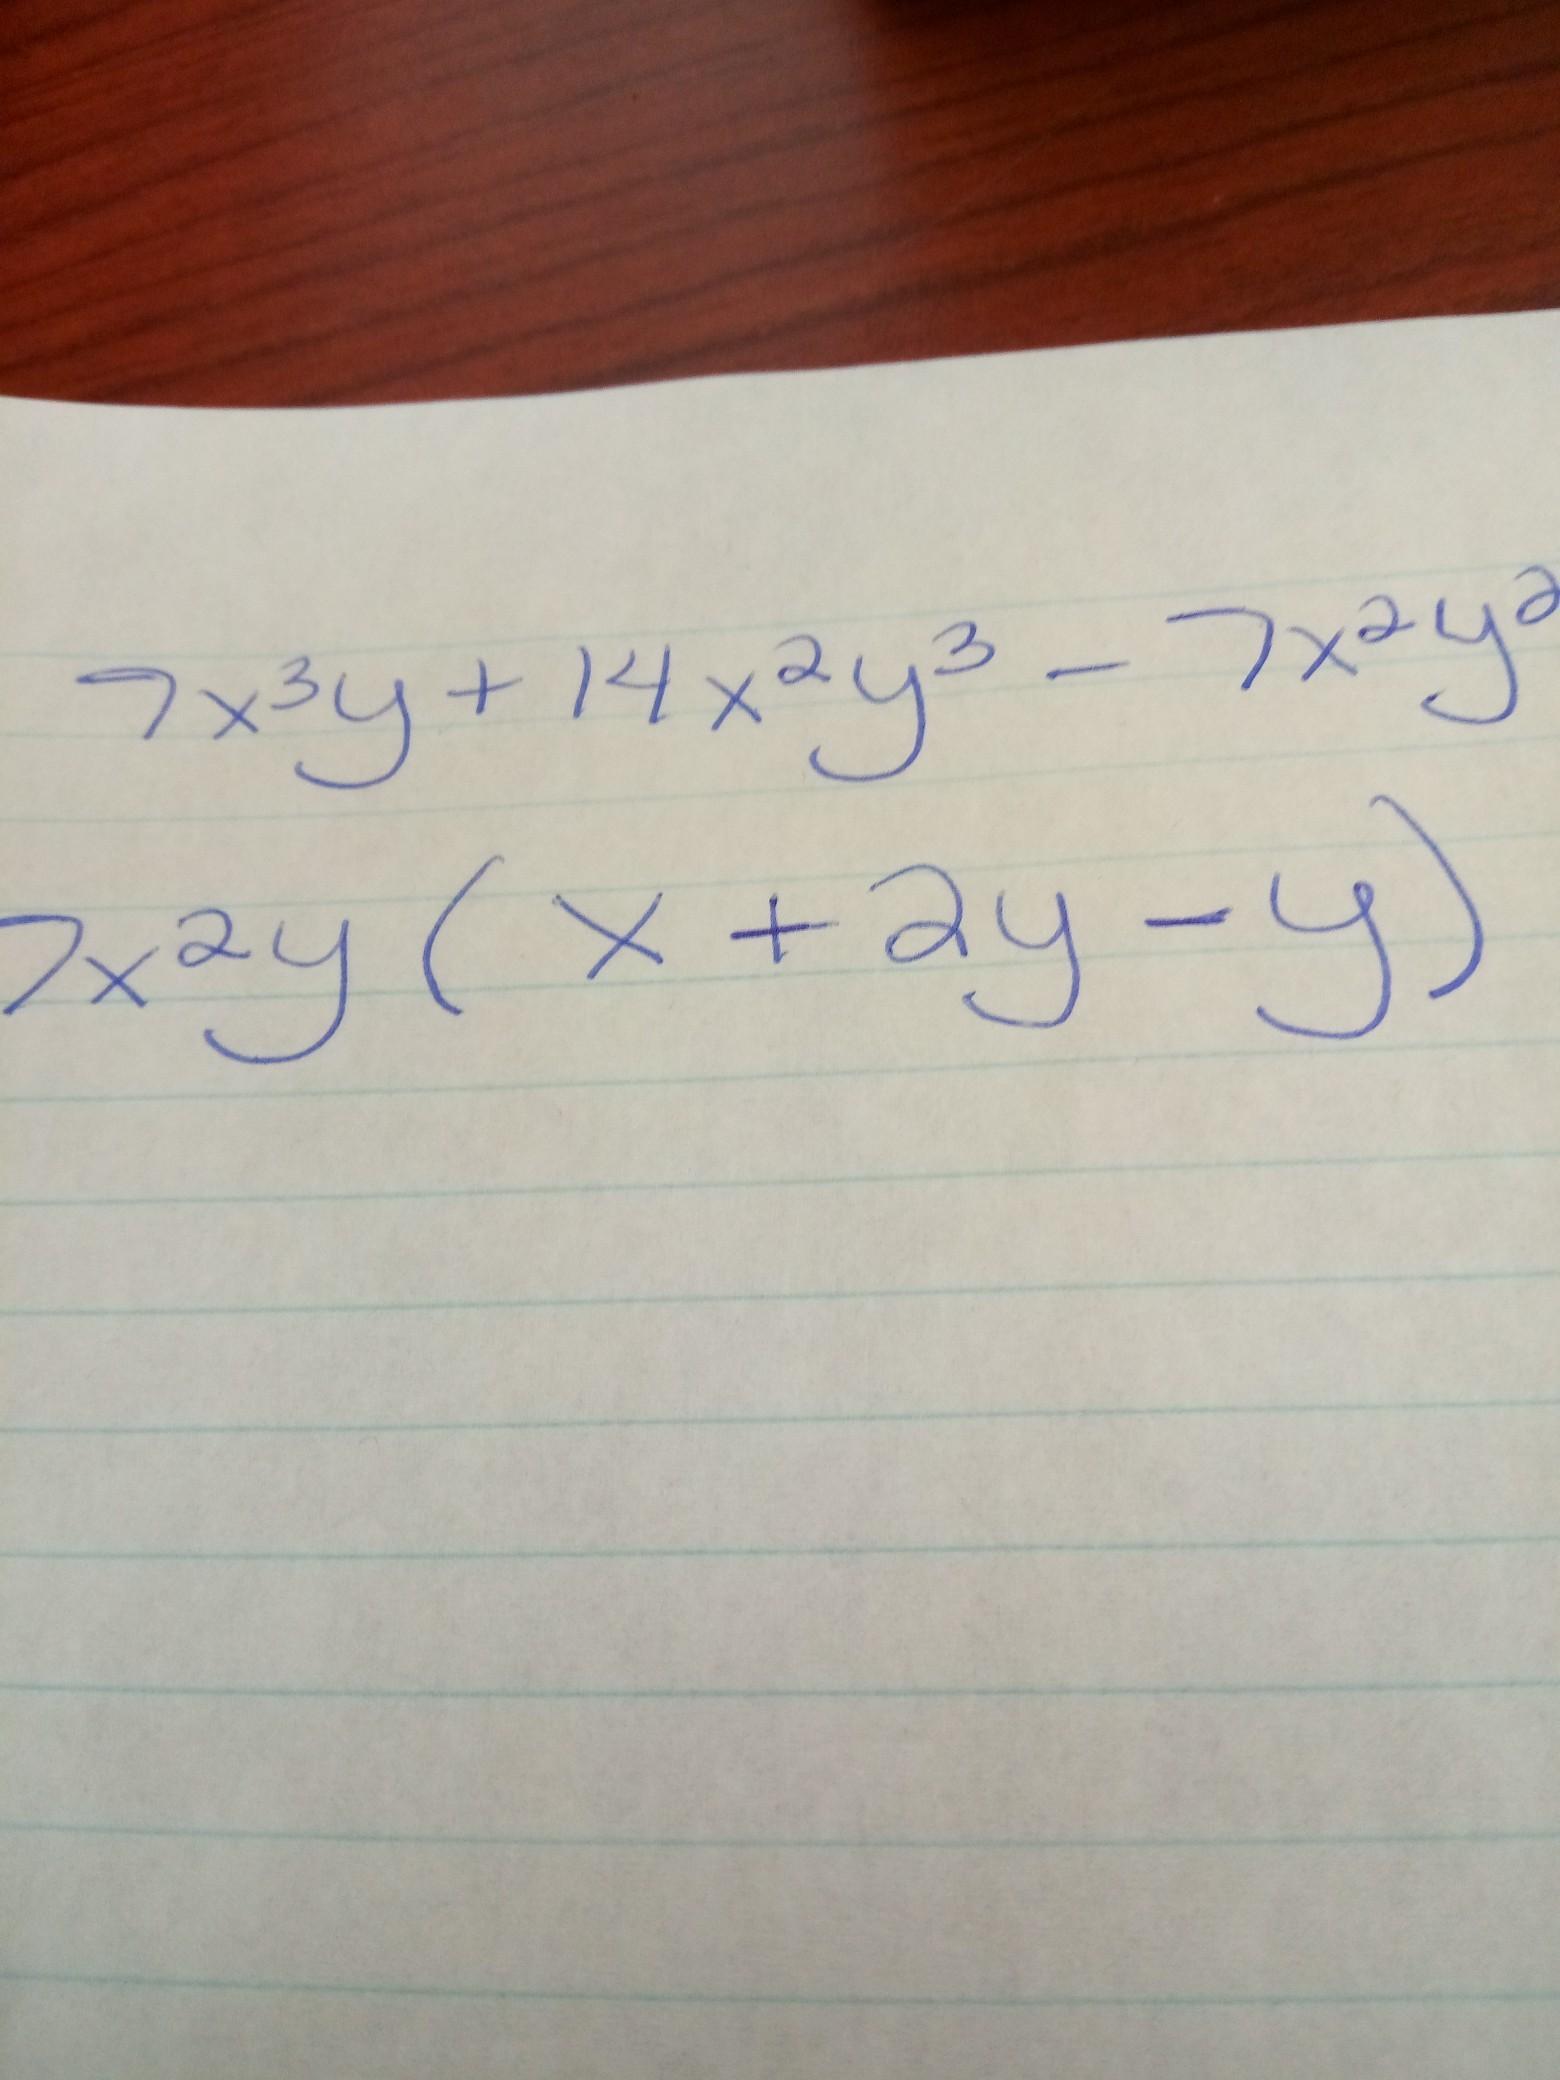 7x³y + 14x²y³ - 7x²y²
7x²y ( x + 2y - y)